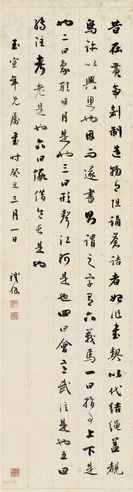 昔在黄帝創制造物有沮誦倉頡者始作書契以代結繩蓋覩
鳥跡以興思也因而遂 則謂之字有六義焉一曰指事上下是
也二曰象形日月是也三曰形聲江河是也四曰會意武信是也五曰
轉注考老是也六曰假借令長是也
玉宣年兄屬書 時癸丑三月一日